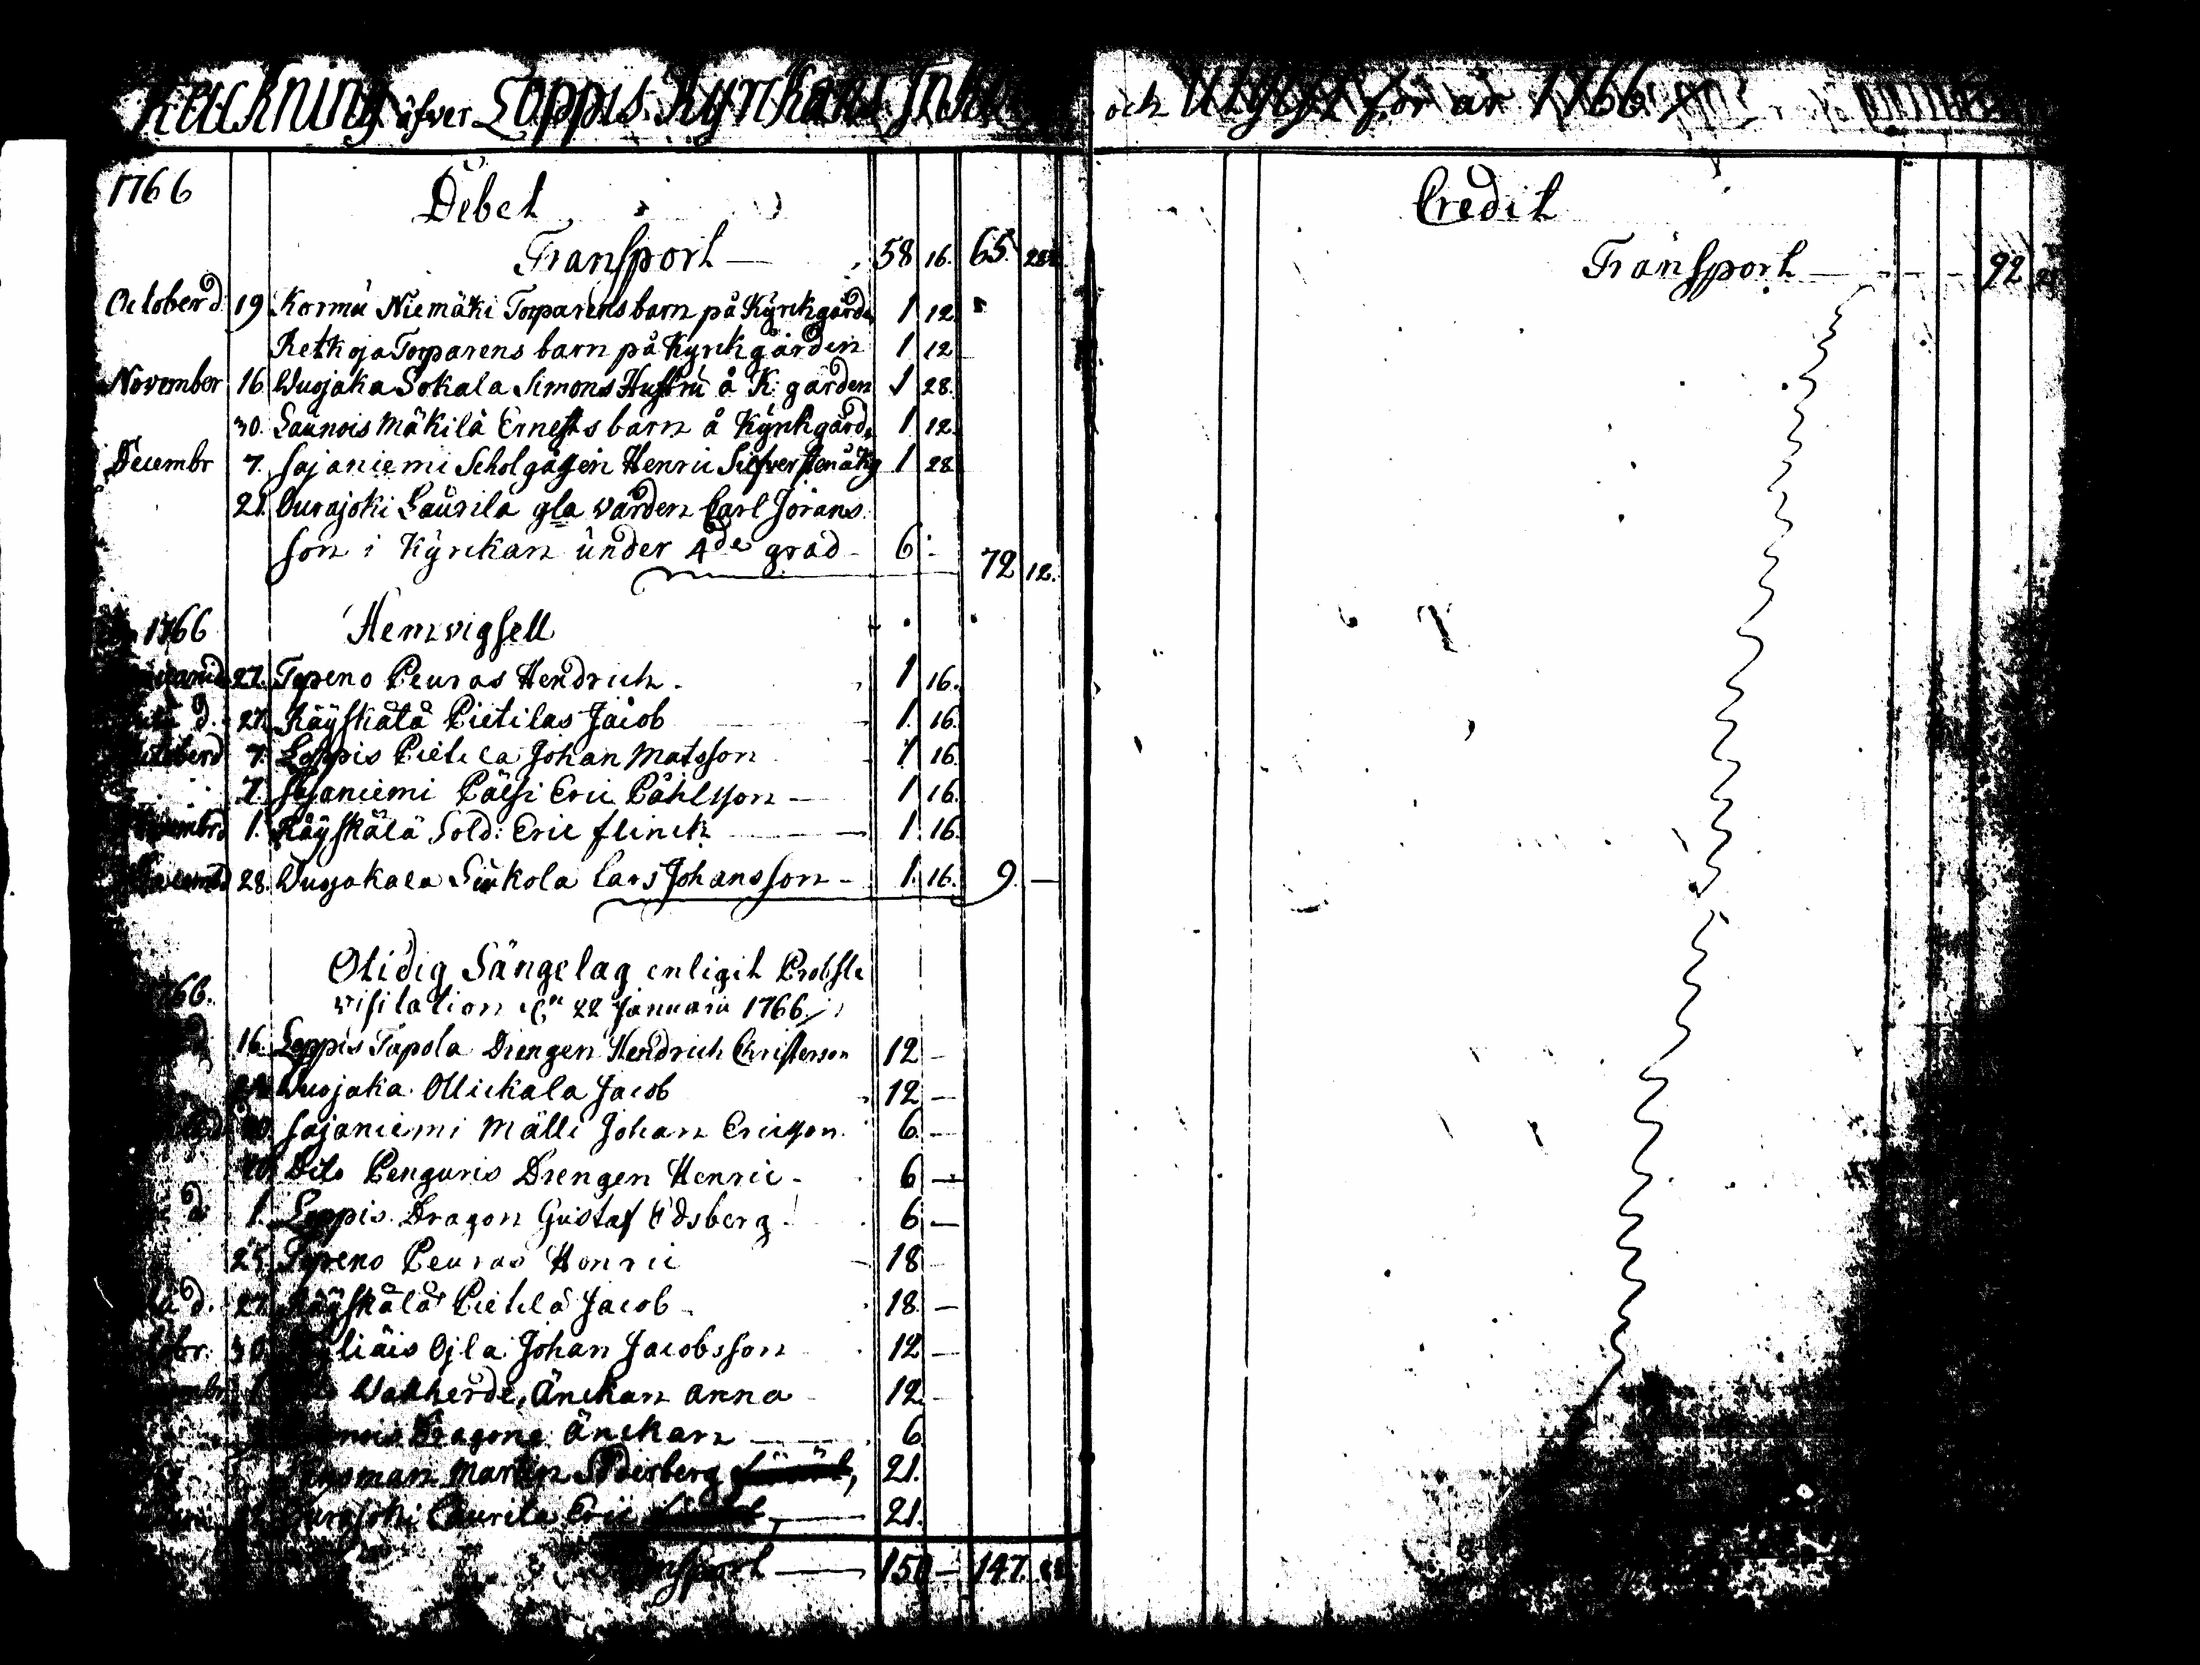 Räckning öfver Loppis Kyrckans
och Utgift för år 1766
1766 Debet
Transport — 58 16. 65. 28
October d 19 Kormu Niemäki Torparens barn på Kyrckgårdn 1 12.
Retkoja Torparens barn på Kyrckgården 1 12
November 16 Wuojaka Sokala Simons Hustru å K: gården 1 28.
30. Launois Mäkilä Ernests barn å Kyrckgårdn 1 12.
Decembr 7. Sajaniemi Henric 1 28
21. Ourajoki Laurila gla värden Carl Jörans
son i Kyrckan under 4de grad - 6 - 72 12.
1766 Hemvigsell
27. Topeno Peuras Hendrich. 1 16.
d. 27. Räyskälä Pietilas Jacob 1. 16.
7. Loppis Pietila Johan Matsson 1 16
7. Sajaniemi Päysi Eric Påhlsson — 1 16.
1. Räyskälä Sold: Eric Flinck — 1. 16.
28. Wuojakala Siukola Lars Johansson - 1. 16. 9. —
Otidig Sängelag enligit Probste
66. visitation d. 22 Januarii 1766.
16. Loppis Topola Drengen Hendrich Christerson 12 —
Wuojaka Ollickala Jacob 12 —
Sajaniemi Mälli Johan Ericsson 6. —
Dito Penguris Drengen Henric - 6 —
d. 1. Loppis Dragon Gustaf Edsberg 6 —
25. Topeno Peuras Henric 18 —
d. 27. Räyskälä Pietilä Jacob 18. —
30. Ojla Johan Jacobsson 12 —
1 Wallherde, Änckan Anna 12. —
Dragone Änckan — 6
Martin Söderberg 21.
Ourajoki Laurila Eric — 21.
Transport — 150 — 147.
Credit
Transport — 92